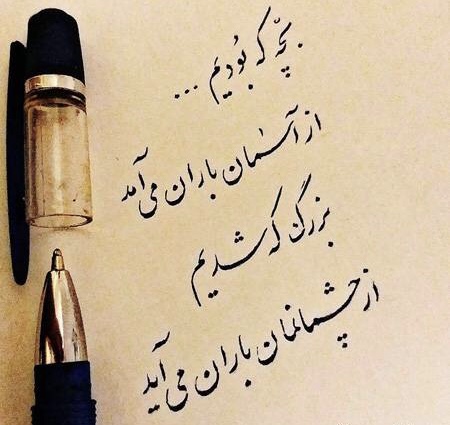 بچّه که بودیم ...
از آسمان باران می‌آمد
بزرگ که شدیم
از چشمانمان باران می‌آید